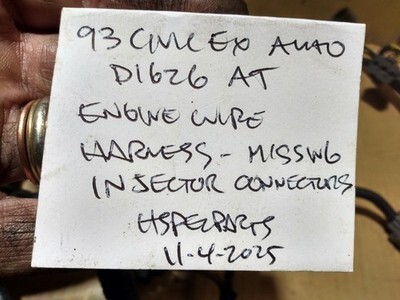 93 CIVIC EX AUTO
D16Z6 AT
ENGINE WIRE
HARNESS - MISSING
INJECTOR CONNECTORS
HSPEZPARTS
11-4-2025